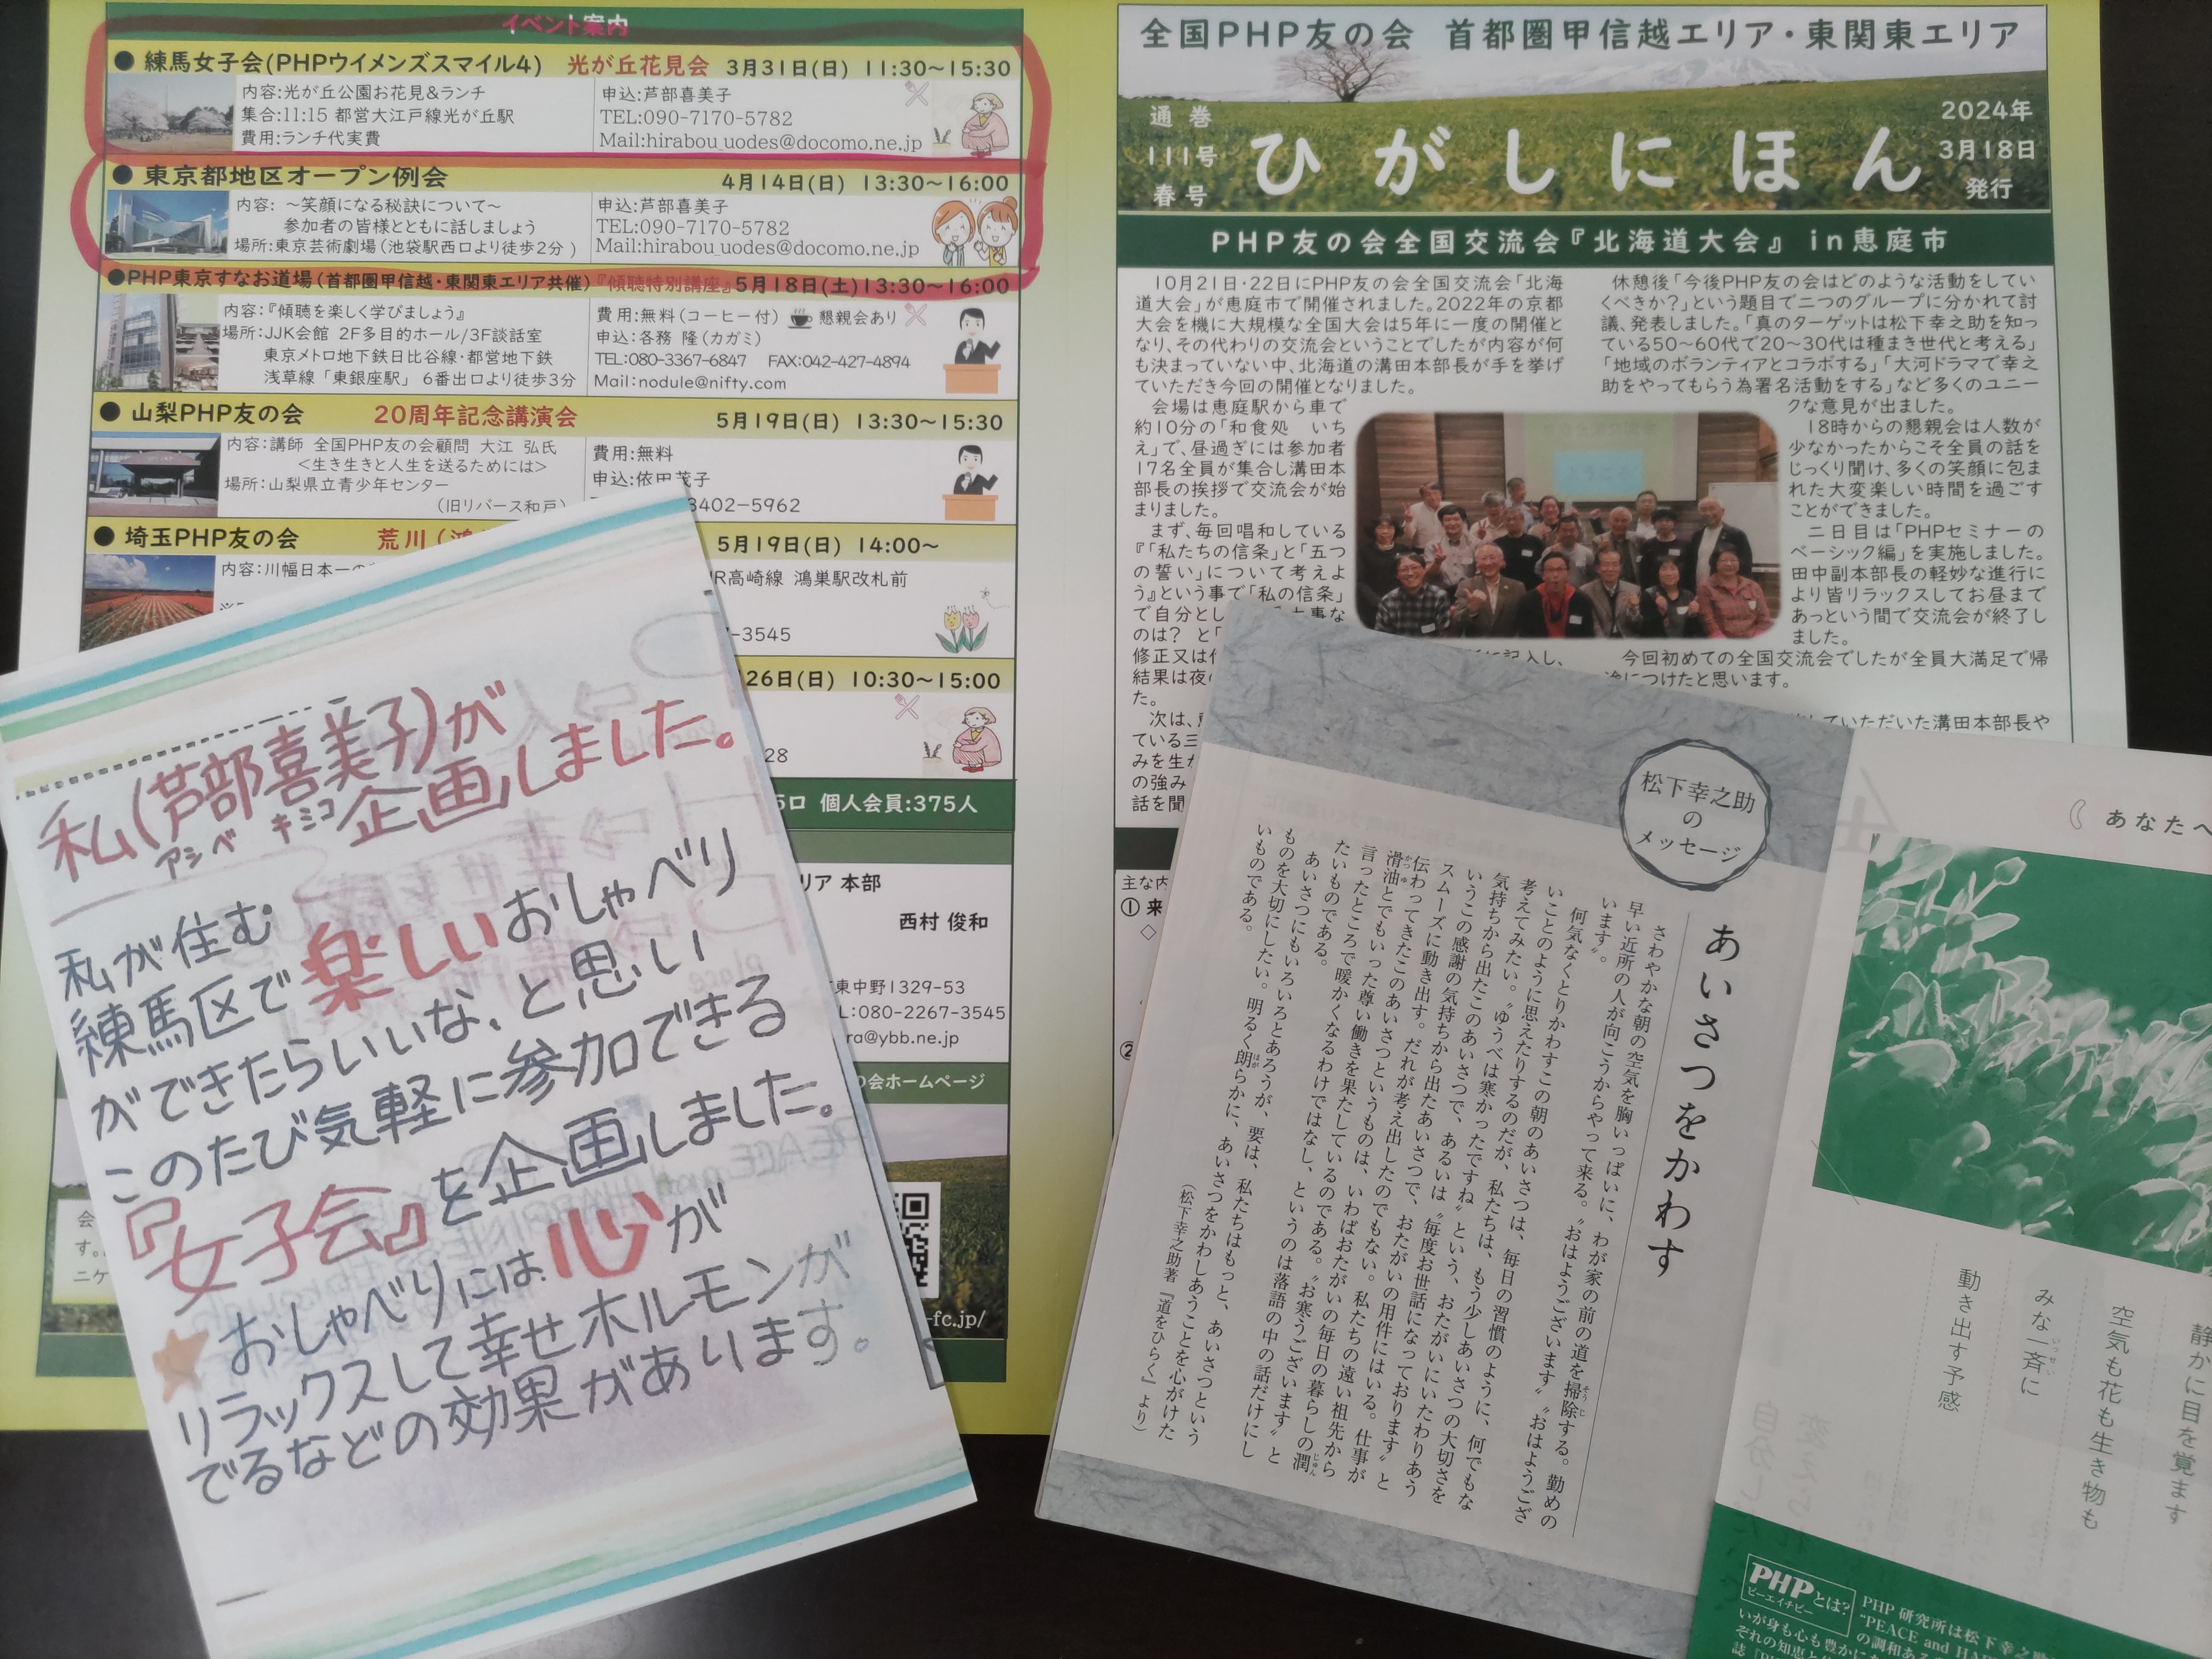 イベント案内
● 練馬女子会(PHPウイメンズスマイル4) 光が丘花見会 3月31日(日) 11:30〜15:30
内容:光が丘公園お花見&ランチ
集合:11:15 都営大江戸線光が丘駅
費用:ランチ代実費
申込:芦部喜美子
TEL:090-7170-5782
Mail:hirabou_uodes@docomo.ne.jp
● 東京都地区オープン例会 4月14日(日) 13:30〜16:00
内容: 〜笑顔になる秘訣について〜
参加者の皆様とともに話しましょう
場所:東京芸術劇場(池袋駅西口より徒歩2分)
申込:芦部喜美子
TEL:090-7170-5782
Mail:hirabou_uodes@docomo.ne.jp
●PHP東京すなお道場(首都圏甲信越・東関東エリア共催)『傾聴特別講座』5月18日(土)13:30〜16:00
内容:『傾聴を楽しく学びましょう』
場所:JJK会館 2F多目的ホール/3F談話室
東京メトロ地下鉄日比谷線・都営地下鉄
浅草線「東銀座駅」 6番出口より徒歩3分
費用:無料(コーヒー付) 懇親会あり
申込:各務 隆(カガミ)
TEL:080-3367-6847 FAX:042-427-4894
Mail:nodule@nifty.com
● 山梨PHP友の会 20周年記念講演会 5月19日(日) 13:30〜15:30
内容:講師 全国PHP友の会顧問 大江 弘氏
<生き生きと人生を送るためには>
場所:山梨県立青少年センター
(旧リバース和戸)
費用:無料
申込:依田茂子
3402-5962
● 埼玉PHP友の会 荒川 5月19日(日) 14:00〜
内容:川幅日本一の
JR高崎線 鴻巣駅改札前
-3545
26日(日) 10:30〜15:00
28
個人会員:375人
リア 本部
西村 俊和
東中野1329-53
L:080-2267-3545
ra@ybb.ne.jp
の会ホームページ
会
す。
ニケ
-fc.jp/
全国PHP友の会 首都圏甲信越エリア・東関東エリア
通巻
111号
春号
ひがしにほん
2024年
3月18日
発行
PHP友の会全国交流会『北海道大会』 in恵庭市
10月21日・22日にPHP友の会全国交流会「北海
道大会」が恵庭市で開催されました。2022年の京都
大会を機に大規模な全国大会は5年に一度の開催と
なり、その代わりの交流会ということでしたが内容が何
も決まっていない中、北海道の溝田本部長が手を挙げ
ていただき今回の開催となりました。
会場は恵庭駅から車で
約10分の「和食処 いち
え」で、昼過ぎには参加者
17名全員が集合し溝田本
部長の挨拶で交流会が始
まりました。
まず、毎回唱和している
『「私たちの信条」と「五つ
の誓い」について考えよ
う』という事で「私の信条」
で自分とし
のは? と「
修正又は
に記入し、
結果は夜
た。
次は、
ている三
みを生か
の強み
話を聞
休憩後「今後PHP友の会はどのような活動をしてい
くべきか?」という題目で二つのグループに分かれて討
議、発表しました。「真のターゲットは松下幸之助を知っ
ている50〜60代で20〜30代は種まき世代と考える」
「地域のボランティアとコラボする」「大河ドラマで幸之
助をやってもらう為署名活動をする」など多くのユニー
クな意見が出ました。
18時からの懇親会は人数が
少なかったからこそ全員の話を
じっくり聞け、多くの笑顔に包ま
れた大変楽しい時間を過ごす
ことができました。
二日目は「PHPセミナーの
ベーシック編」を実施しました。
田中副本部長の軽妙な進行に
より皆リラックスしてお昼まで
あっという間で交流会が終了し
ました。
今回初めての全国交流会でしたが全員大満足で帰
につけたと思います。
していただいた溝田本部長や
主な内
① 来
◇
②
私(芦部喜美子)が
アシベ キミコ
企画しました。
私が住む
練馬区で楽しいおしゃべり
ができたらいいな、と思い
このたび気軽に参加できる
『女子会』を企画しました。
★おしゃべりには心が
リラックスして幸せホルモンが
でるなどの効果があります。
松下幸之助
の
メッセージ
あいさつをかわす
さわやかな朝の空気を胸いっぱいに、わが家の前の道を掃除する。勤めの
早い近所の人が向こうからやって来る。〝おはようございます〟〝おはようござ
います〟。
何気なくとりかわすこの朝のあいさつは、毎日の習慣のように、何でもな
いことのように思えたりするのだが、私たちは、もう少しあいさつの大切さを
考えてみたい。〝ゆうべは寒かったですね〟という、おたがいにいたわりあう
気持ちから出たこのあいさつで、あるいは〝毎度お世話になっております〟と
いうこの感謝の気持ちから出たあいさつで、おたがいの用件にはいる。仕事が
スムーズに動き出す。だれが考え出したのでもない。私たちの遠い祖先から
伝わってきたこのあいさつというものは、いわばおたがいの毎日の暮らしの潤
滑油とでもいった尊い働きを果たしているのである。〝お寒うございます〟と
言ったところで暖かくなるわけではなし、というのは落語の中の話だけにし
たいものである。
あいさつにもいろいろとあろうが、要は、私たちはもっと、あいさつという
ものを大切にしたい。明るく朗らかに、あいさつをかわしあうことを心がけた
いものである。
(松下幸之助著『道をひらく』より)
あなたへ
静かに目を覚ます
空気も花も生き物も
みな一斉に
動き出す予感
PHPとは?
ピーエイチピー
PHP 研究所は松下幸之助
“PEACE and HA
の調和ある
いが身も心も豊かにな
それの知恵と
誌『PH